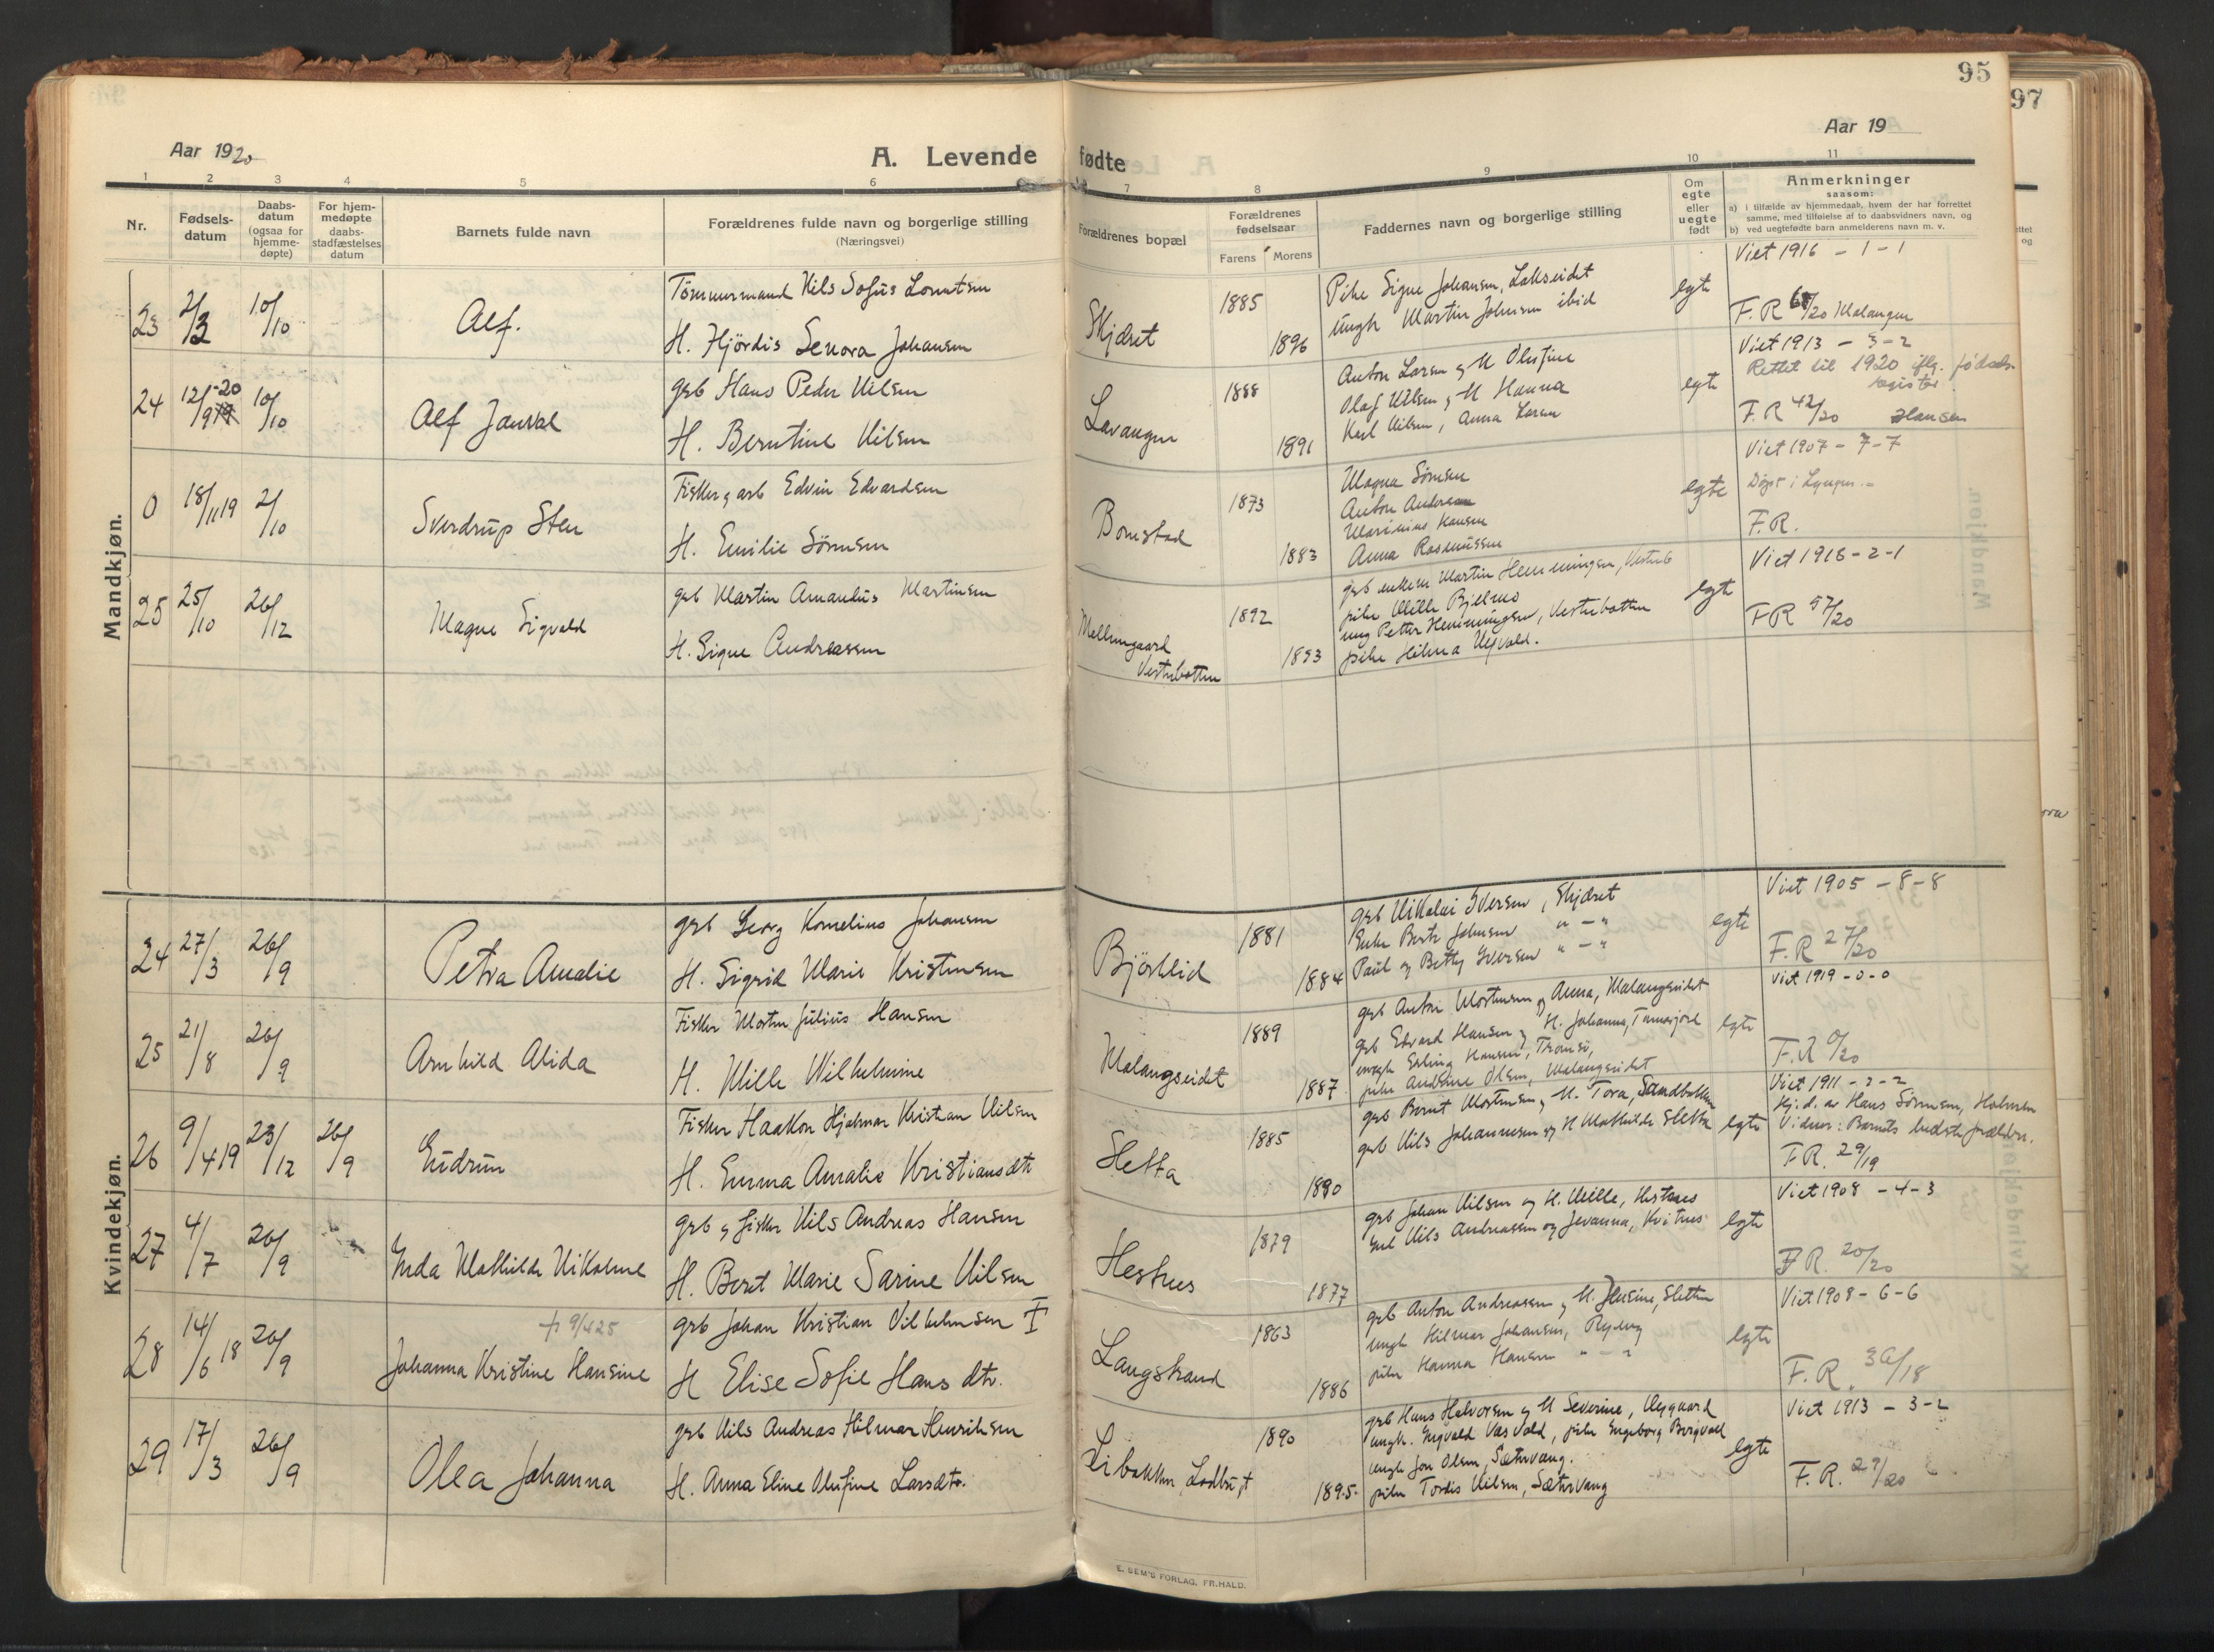 95
97
Aar 1920
A. Levende
fødte
Aar 19
1 2 3 4 5 6 7 8 9 10 11
Nr.
Fødsels-
datum
Daabs-
datum
(ogsaa for
hjemme-
døpte)
For hjem-
medøpte
daabs-
stadfæstelses
datum
Barnets fulde navn
Forældrenes fulde navn og borgerlige stilling
(Næringsvei)
Forældrenes bopæl
Forældrenes
fødselsaar
Farens Morens
Faddernes navn og borgerlige stilling
Om
egte
eller
uegte
født
Anmerkninger
saasom:
a) i tilfælde av hjemmedaab, hvem der har forrettet
samme, med tilføielse af to daabsvidners navn, og
b) ved uegtefødte barn anmelderens navn m. v.
Mandkjøn.
23 2/3 10/10 Alf.
Tømmermand Nils Sofus Lorentsen
H. Hjördis Senora Johansen
Skjæret 1885 1896
Pike Signe Johansen, Lakseidet
Ungk Martin Johnsen ibid
egte
Viet 1916 - 1 - 1
F.R /20 Malangen
24 12/9 19 -20 10/10 Alf Janval
grb Hans Peder Nilsen
H. Berntine Nilsen
Lavangen 1888 1891
Anton Larsen og H Olufine
Olaf Nilsen og H Hanna
Karl Nilsen, Anna Larsen
egte
Viet 1913 - 3 - 2
Rettet til 1920 iflg. fødsels-
register
F.R 42/20 Hansen
0 18/11 19 2/10 Sverdrup Sten
Fisker og arb Edvin Edvardsen
H. Emilie Sørensen
Bomstad 1873 1883
Magna Sørensen
Anton Andersen
Marinius Hansen
Anna Rasmussen
egte
Viet 1907 - 7 - 7
Døpt i Lyngen.
F.R.
25 25/10 26/12 Magne Sigvald
grb Martin Amandus Martinsen
H. Signe Andreassen
Mellemgaard
Vesterbotten
1892 1893
grb enkem Martin Henningsen, Vesterb
pike Mille Bjellmo
ung Petter Henningsen, Vesterbotten
pike Hilma
egte
Viet 1918 - 2 - 1
FR 57/20
Kvindekjøn.
24 27/3 26/9 Petra Amalie
grb Georg Kornelius Johansen
H. Sigrid Marie Kristensen
Bjørklid 1881 1884
grb Nikolai Iversen, Skjæret
Enke Berte Johnsen " - "
Paul og Betty Iversen " - "
egte
Viet 1905 - 8 - 8
F.R 27/20
25 21/8 26/9 Arnhild Alida
Fisker Morten Julius Hansen
H. Mille Wilhelmine
Malangseidet 1889 1887
grb Anton Mortensen og Anna, Malangseidet
grb Edvard Hansen og H. Johanna, Tennesfjord
ungk Erling Hansen, Tromsø,
pike Andrine Olsen, Malangseidet
egte
Viet 1919 - 0 - 0
F.R 0/20
26 9/4 19 23/12 26/9 Gudrun
Fisker Haakon Hjalmar Kristian Nilsen
H. Emma Amalie Kristiansdtr
Sletta 1885 1890
grb Bernt Mortensen og H. Tora, Sandbakken
grb Nils Johannesen og H Mathilde Sletta
egte
Viet 1911 - 2 - 2
Hj. d. av Hans Sørensen, Holmen
Vidner: Barnets bedsteforældre.
F.R. 29/19
27 4/7 26/9 Inda Mathilde Nikoline
grb og fisker Nils Andreas Hansen
H. Beret Marie Sarine Nilsen
Hestnes 1879 1877
grb Johan Nilsen og H. Mille, Hestnes
grb Nils Andreassen og Jevanna, Kvitnes
egte
Viet 1908 - 4 - 3
F.R. 20/20
28 14/6 18 26/9
† 9/4 25
Johanna Kristine Hansine
grb Johan Kristian Vilhelmsen I
H Elise Sofie Hans dtr.
Langstrand 1863 1886
grb Anton Andreassen og H. Jensine, Sletten
ungk Hilmar Johansen, Ryeng
pike Hanna Hansen " - "
egte
Viet 1908 - 6 - 6
F.R. 36/18
29 17/3 26/9 Olea Johanna
grb Nils Andreas Hilmar Henriksen
H. Anna Eline Olufine Larsdtr.
Libakken, 1890 1895
grb Hans Halvorsen og H Severine, Nygaard
ungk. Ingvald Vasvold, pike Engeborg Bergvoll
ungk Jon Olsen, Sætervang.
pike Tordis Nilsen, Sætervang
egte
Viet 1913 - 3 - 2
F.R. 29/20
E. SEM'S FORLAG, FR.HALD.